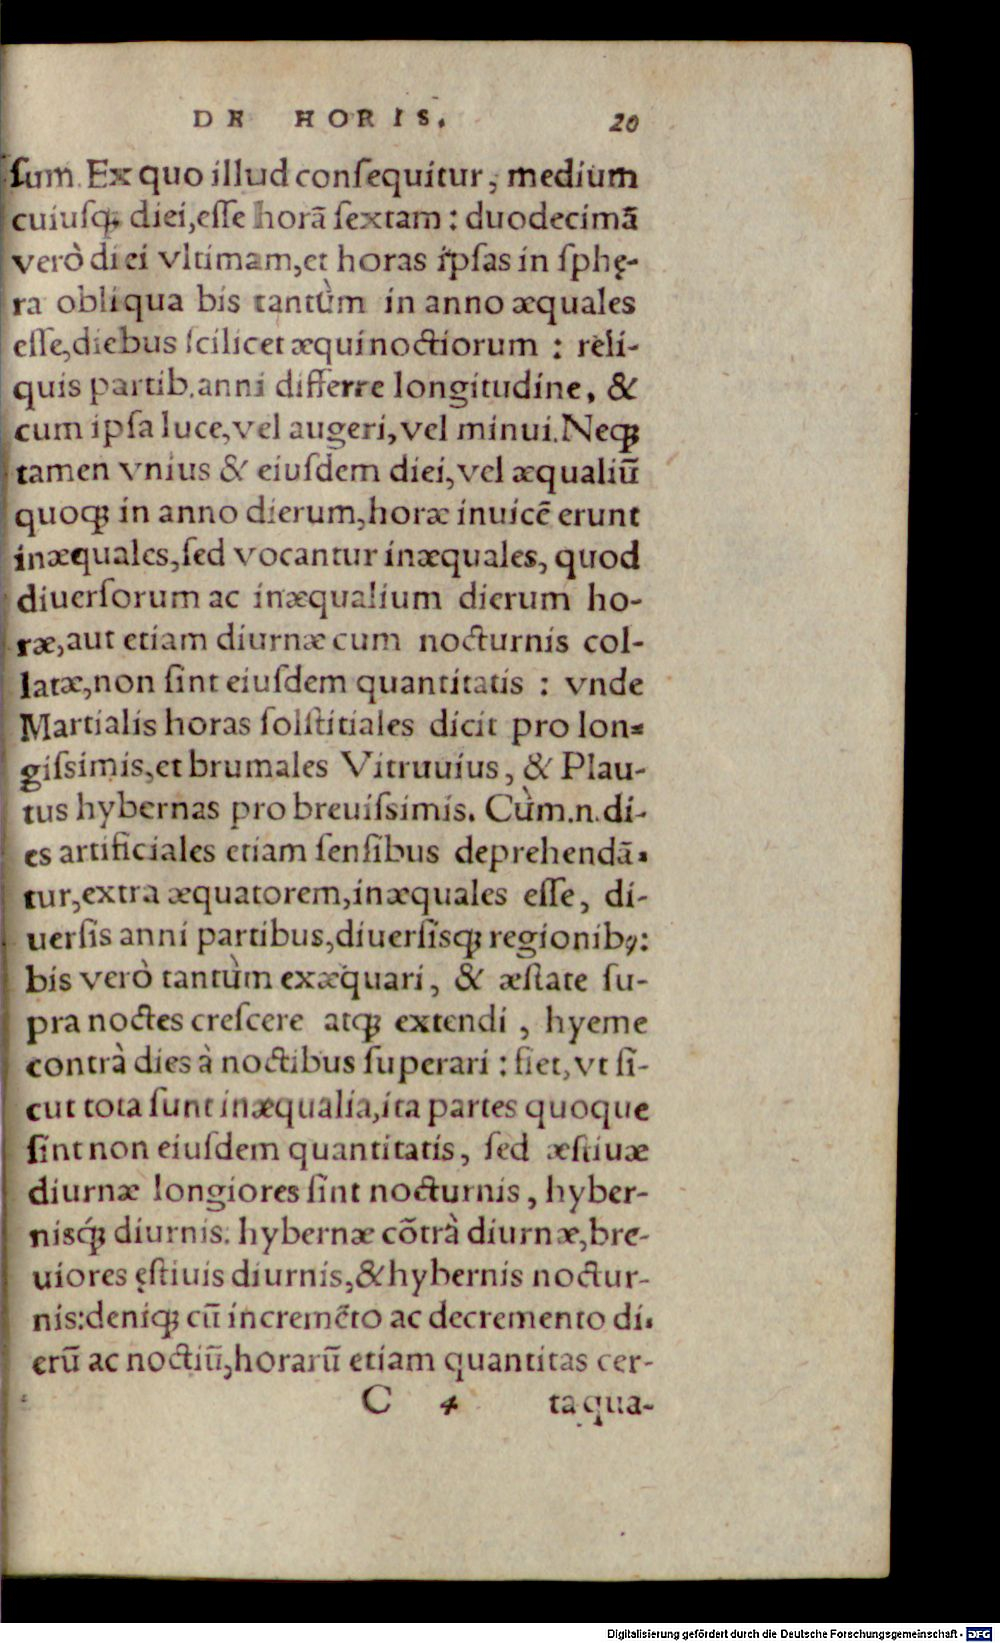 DE HORIS. 20
ſum. Ex quo illud conſequitur, medium
cuiuſq́; diei,eſſe horā ſextam : duodecimā
verò diei vltimam,et horas ipſas in ſphę-
ra obliqua bis tantùm in anno æquales
eſſe,diebus ſcilicet æquinoctiorum : reli-
quis partib.anni differre longitudine, &
cum ipſa luce,vel augeri,vel minui.Neq;
tamen vnius & eiuſdem diei,vel æqualiū
quoq; in anno dierum,horæ inuicē erunt
inæquales,ſed vocantur inæquales, quod
diuerſorum ac inæqualium dierum ho-
ræ,aut etiam diurnæ cum nocturnis col-
latæ,non ſint eiuſdem quantitatis : vnde
Martialis horas ſolſtitiales dicit pro lon-
giſsimis,et brumales Vitruuius, & Plau-
tus hybernas pro breuiſsimis. Cùm.n.di-
es artificiales etiam ſenſibus deprehendā-
tur,extra æquatorem,inæquales eſſe, di-
uerſis anni partibus,diuerſisq; regionibꝰ:
bis verò tantùm exæquari, & æſtate ſu-
pra noctes creſcere atq; extendi , hyeme
contrà dies à noctibus ſuperari : fiet,vt ſi-
cut tota ſunt inæqualia,ita partes quoque
ſint non eiuſdem quantitatis, ſed æſtiuæ
diurnæ longiores ſint nocturnis, hyber-
nisq́; diurnis: hybernæ cōtrà diurnæ,bre-
uiores ęſtiuis diurnis,& hybernis noctur-
nis:deniq; cū incremēto ac decremento di-
erū ac noctiū,horarū etiam quantitas cer-
C 4 ta qua-
Digitalisierung gefördert durch die Deutsche Forschungsgemeinschaft - DFG